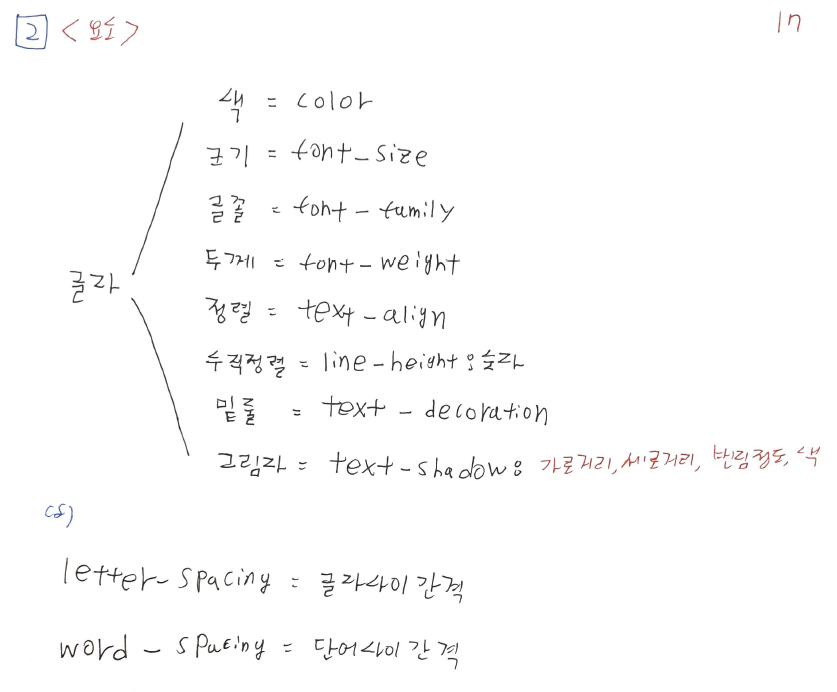 2 <요소> 17
색 = color
크기 = font-size
글꼴 = font-family
두께 = font-weight
글자
정렬 = text-align
수직정렬 = line-height : 숫자
밑줄 = text-decoration
그림자 = text-shadow : 가로거리, 세로거리, 번림정도, 색
cf)
letter-spacing = 글자사이 간격
word-spacing = 단어사이 간격